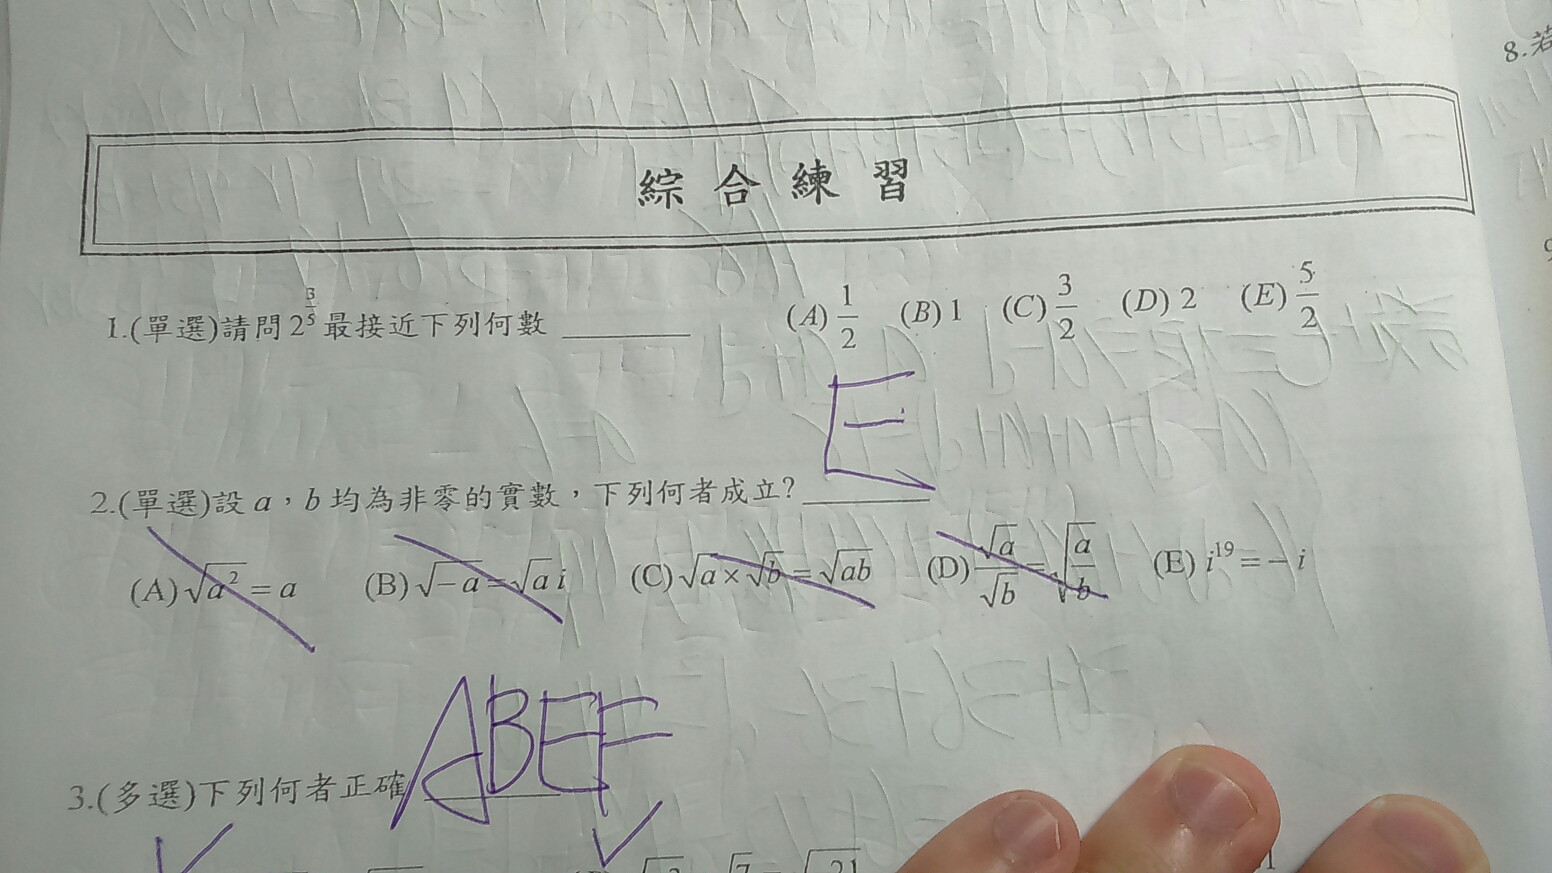 8.若
綜合練習
1.(單選)請問 2^{3/5} 最接近下列何數 ________ (A) 1/2 (B) 1 (C) 3/2 (D) 2 (E) 5/2
E
2.(單選)設 a，b 均為非零的實數，下列何者成立? ________
(A) √a² = a (B) √-a = √a i (C) √a × √b = √ab (D) √a/√b = √(a/b) (E) i¹⁹ = - i
ABEF
3.(多選)下列何者正確 ________